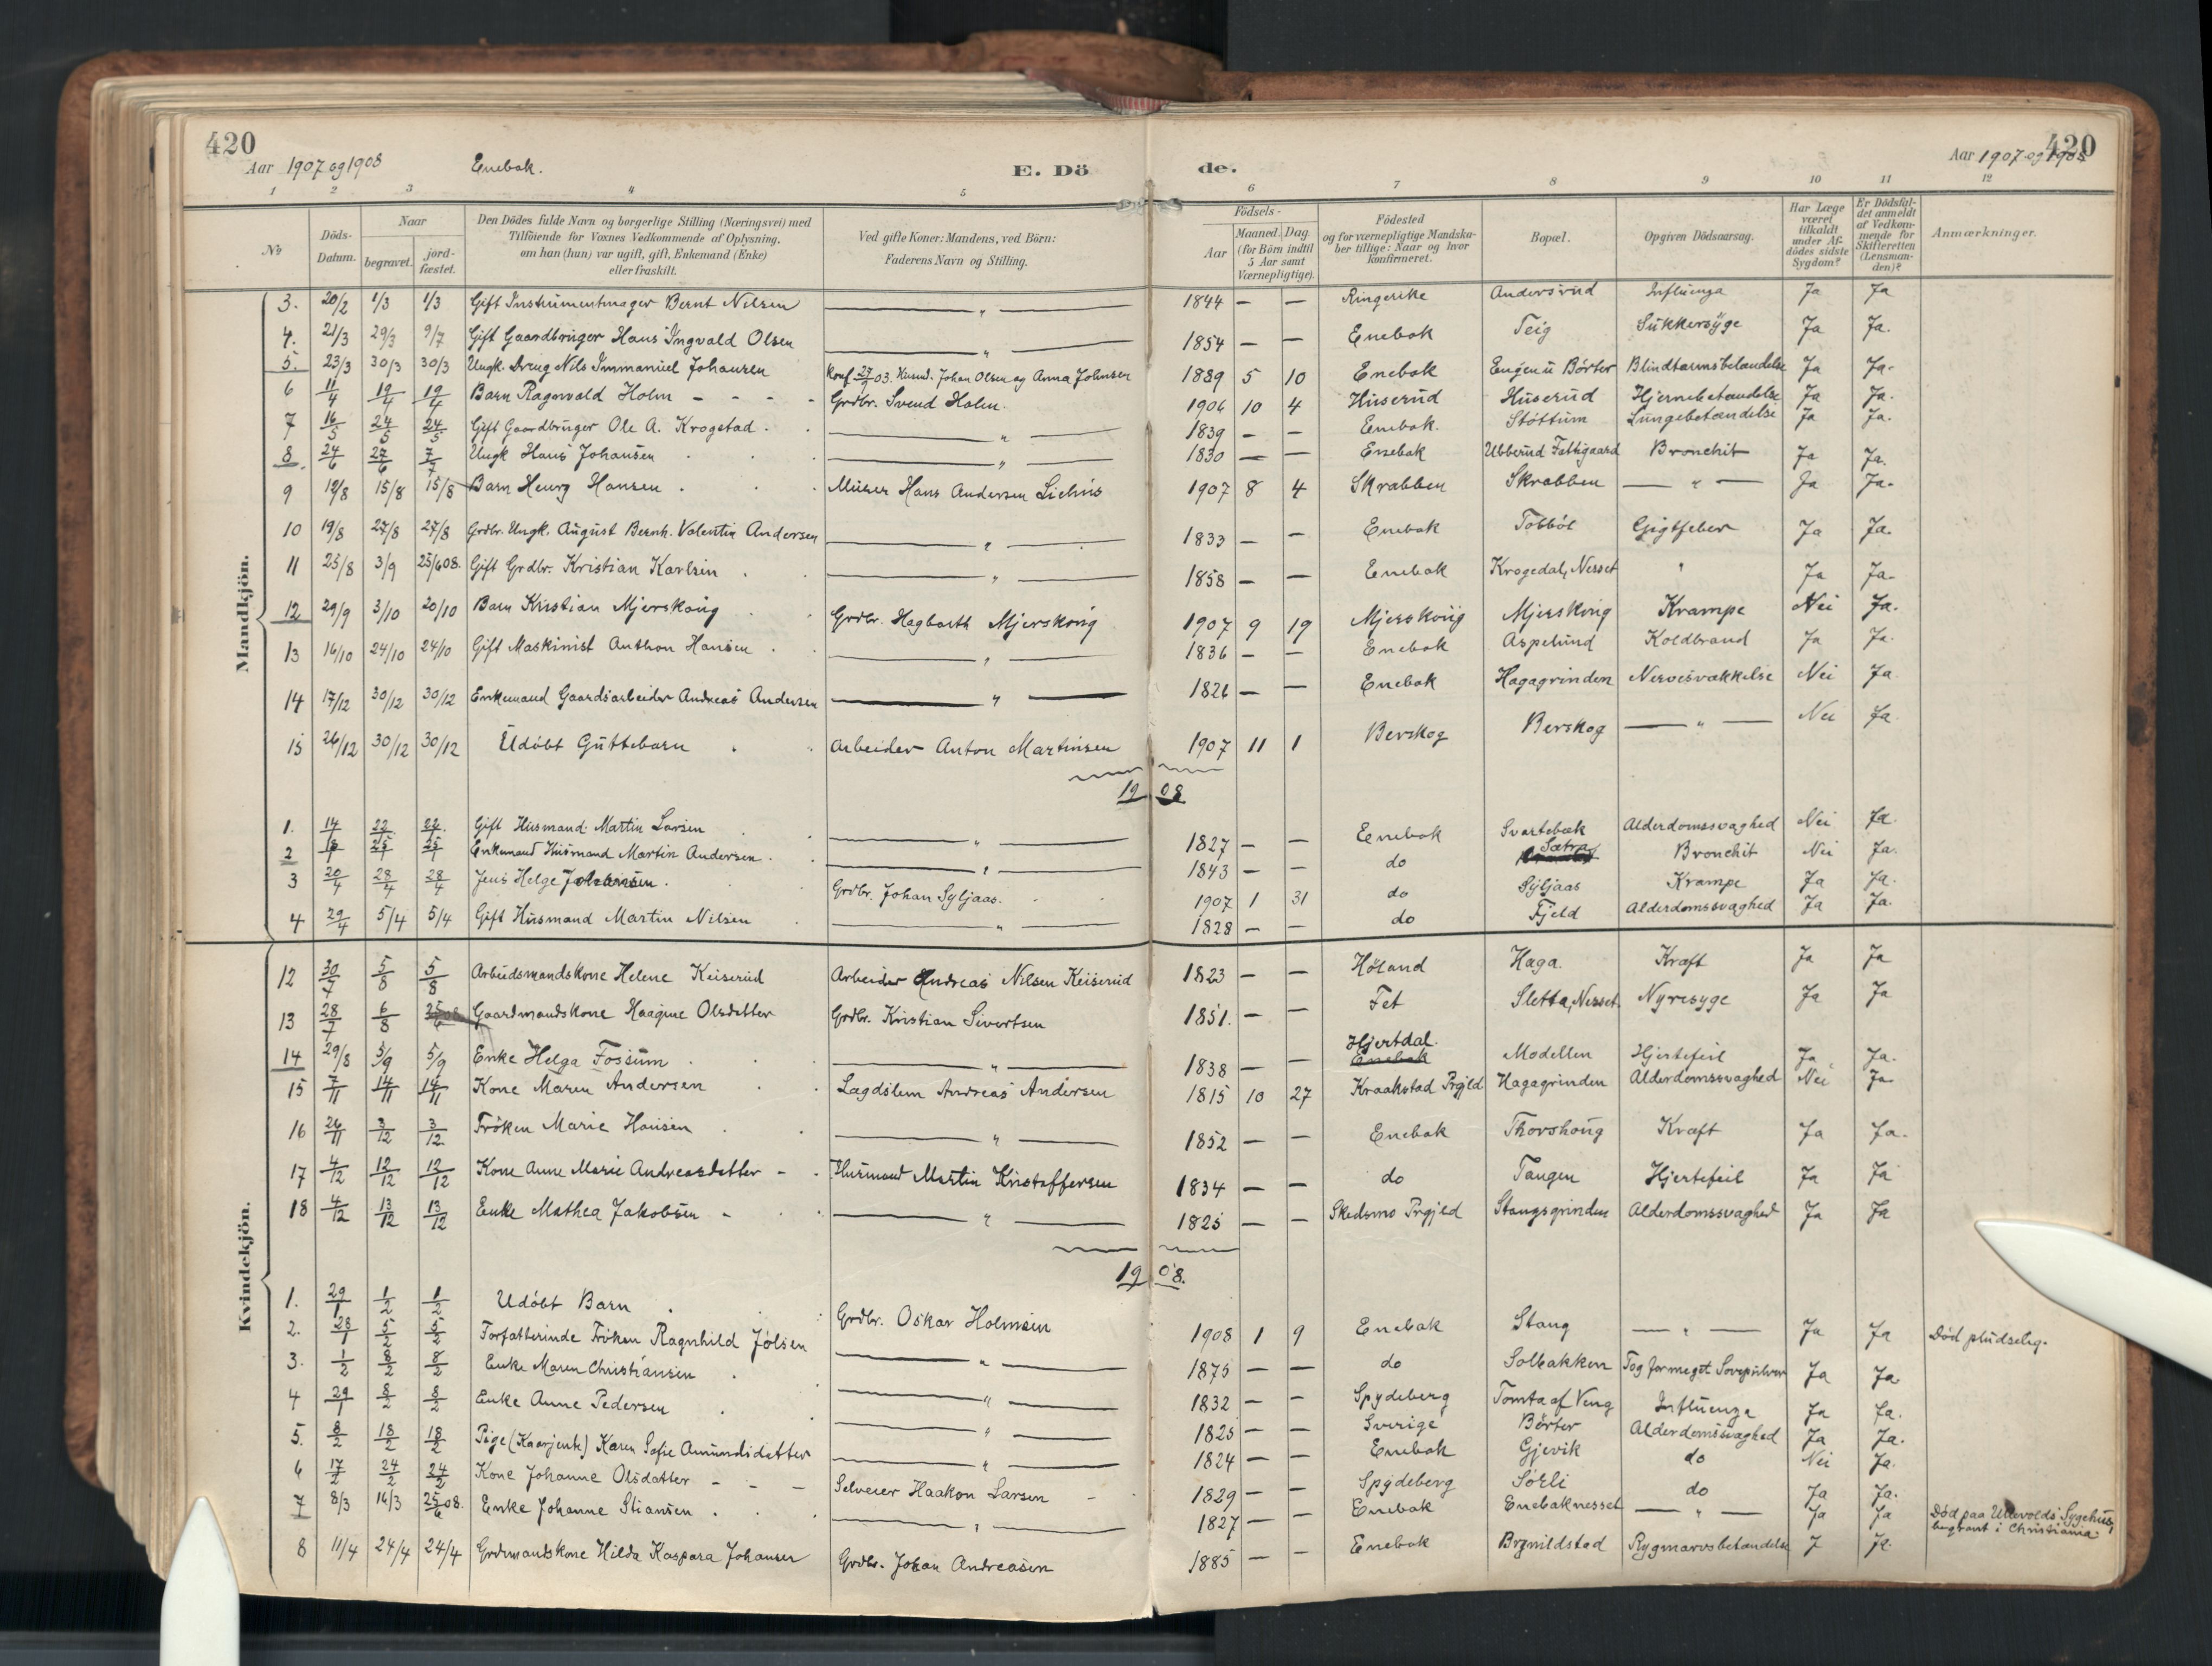 420 420
Aar 1907 og 1908 Enebak. E. Dö de. Aar 1907 og 1908
1 2 3 4 5 6 7 8 9 10 11 12
No Döds-Datum. Naar begravet. jord-fæstet. Den Dödes fulde Navn og borgerlige Stilling (Næringsvei) med Tilföiende for Voxnes Vedkommende af Oplysning, om han (hun) var ugift, gift, Enkemand (Enke) eller fraskilt. Ved gifte Koner: Mandens, ved Börn: Faderens Navn og Stilling. Födsels- Aar Maaned. Dag (for Börn indtil 5 Aar samt Værnepligtige). Födested og for værnepligtige Mandskaber tillige: Naar og hvor konfirmeret. Bopæl. Opgiven Dödsaarsag. Har Læge været tilkaldt under Afdödes sidste Sygdom? Er Dödsfaldet anmeldt af Vedkommende for Skifteretten (Lensmanden)? Anmærkninger.
Mandkjön.
3. 20/2 1/3 1/3 Gift Instrumentmager Bernt Nilsen — " — 1844 — — Ringerike Andersrud Influenza Ja Ja
4. 21/3 29/3 9/7 Gift Gaardbruger Hans Ingvald Olsen — " — 1854 — — Enebak Teig Sukkersyge Ja Ja.
5. 23/3 30/3 30/3 Ungk. Dreng Nils Immanuel Johansen Konf. 03. Husmd. Johan Olsen og Anna Johnsen 1889 5 10 Enebak Börter Blindtarmsbetændelse Ja Ja.
6 11/4 19/4 19/4 Barn Ragnvald Holm - - - - Grdbr. Svend Holm. 1906 10 4 Huserud Huserud Hjernebetændelse Ja Ja.
7 16/5 24/5 24/5 Gift Gaardbruger Ole A. Krogstad. — " — 1839 — — Enebak. Stöttum Lungebetændelse Ja Ja.
8. 24/6 27/6 7/7 Ungk Hans Johansen — " — 1830 — — Enebak Ubberud Fattigaard Bronchit Ja Ja.
9 12/8 15/8 15/8 Barn Henry Hansen. Murer Hans Andersen 1907 8 4 Skrabben Skrabben — " — Ja Ja.
10 19/8 27/8 27/8 Grdbr. Ungk. August Bernh. Valentin Andersen — " — 1833 — — Enebak Tobböl Gigtfeber Ja Ja.
11 25/8 3/9 25/6 08. Gift Grdbr. Kristian Karlsen — " — 1858 — — Enebak Krogedal, Nesset " Ja Ja.
12 29/9 3/10 20/10 Barn Kristian Mjerskoug Grdbr. Hagbarth Mjerskoug 1907 9 19 Mjerskoug Mjerskoug Krampe Nei Ja.
13 16/10 24/10 24/10 Gift Maskinist Anthon Hansen — " — 1836 — — Enebak Aspelund Koldbrand Ja Ja.
14 17/12 30/12 30/12 Enkemand Gaardsarbeider Andreas Andersen — " — 1826 — — Enebak Hagagrinden Nervesvækkelse Nei Ja
15 26/12 30/12 30/12 Udöbt Guttebarn Arbeider Anton Martinsen 1907 11 1 Berskog Berskog — " — Nei Ja.
1908
1. 14/1 22/1 22/1 Gift Husmand Martin Larsen — " — 1827 — — Enebak Svartebæk Alderdomssvaghed Nei Ja.
2 18/1 25/1 25/1 Enkemand Husmand Martin Andersen. — " — 1843 — — do Sætra Bronchit Nei Ja.
3 20/4 28/4 28/4 Jens Helge Johansen. Grdbr. Johan Syljaas. 1907 1 31 do Syljaas Krampe Ja Ja.
4 29/4 5/4 5/4 Gift Husmand Martin Nilsen — " — 1828 — — do Fjeld Alderdomssvaghed Ja Ja.
Kvindekjön.
12 30/7 5/8 5/8 Arbeidsmandskone Helene Keiserud Arbeider Andreas Nilsen Keiserud 1823 — — Höland Haga. Kræft Ja Ja
13 28/7 6/8 25/6 08 Gaardmandskone Haagine Olsdatter Grdbr. Kristian Sivertsen 1851. — — Fet Sletta, Nesset Nyresyge Ja Ja
14 29/8 5/9 5/9 Enke Helga Fossum — " — 1838 — Hjertdal. Enebak Modellen Hjertefeil Ja Ja.
15 7/11 14/11 14/11 Kone Maren Andersen Lagdslem Andreas Andersen 1815 10 27 Kraakstad Prgjld Hagagrinden Alderdomssvaghed Nei Ja
16 26/11 3/12 3/12 Fröken Marie Hansen — " — 1852 — — Enebak Thorshoug Kræft Ja Ja.
17 4/12 12/12 12/12 Kone Anne Marie Andreasdatter - - Husmand Martin Kristoffersen 1834 — — do Tangen Hjertefeil Ja Ja
18 4/12 13/12 13/12 Enke Mathea Jakobsen - — " — 1825 — — Skedsmo Prgjld Stangsgrinden Alderdomssvaghed Ja Ja
1908.
1. 29/1 1/2 1/2 Udöbt Barn Grdbr. Oskar Holmsen 1908 1 9 Enebak Stang — " — Ja Ja Död pludselig.
2. 28/1 5/2 5/2 Forfatterinde Fröken Ragnhild Jölsen — " — 1875 — — do Solbakken Tog formeget Sovepulver Ja Ja
3. 1/2 8/2 8/2 Enke Maren Christiansen — " — 1832 — — Spydeberg Tomta af Veng Influenza Ja Ja.
4 29/1 8/2 8/2 Enke Anne Pedersen — " — 1825 — — Sverige Börter Alderdomssvaghed Ja Ja.
5. 8/2 18/2 18/2 Pige (Kaarjente) Karen Sofie Amundsdatter — " — 1824 — — Enebak Gjevik do Nei Ja.
6 17/2 24/2 24/2 Kone Johanne Olsdatter - - - Selveier Haakon Larsen - 1829 — — Spydeberg Sörli do Ja Ja.
7 8/3 16/3 25/6 08. Enke Johanne Stiansen — " — 1827 — — Enebak Enebaknesset — " — Ja Ja Död paa Ullevolds Sygehus, begravt i Christiania
8 11/4 24/4 24/4 Grdmandskone Hilda Kaspara Johansen Grdbr. Johan Andreasen 1885 — — Enebak Brynildstad Rygmarvsbetændelse J Ja.